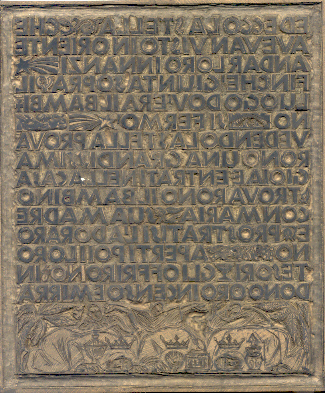 ED ECCO LA STELLA CHE
AVEVAN VISTO IN ORIENTE
ANDAR LORO INNANZI
FINCHE GIUNTA SOPRA IL
LUOGO DOV'ERA IL BAMBI
NO VI FERMO
VEDENDO LA STELLA PROVA
RONO UNA GRANDISSIMA
GIOIA E ENTRATI NELLA CASA
TROVARONO IL BAMBINO
CON MARIA SUA MADRE
E PROSTRATI L'ADORARO
NO APERTI POI I LORO
TESORI GLI OFFRIRONO IN
DONO ORO INCENSO E MIRRA